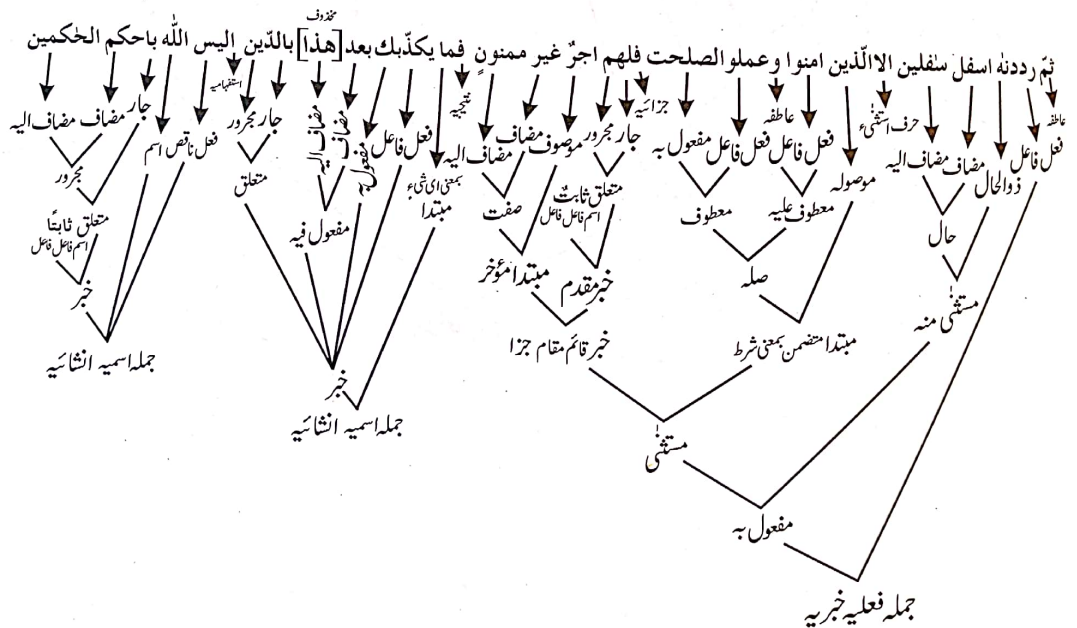 محذوف
ثمّ رددنٰه اسفل سٰفلين الا الّذين امنوا وعملو الصلحت فلهم اجرٌ غير ممنونٍ فما يكذّبك بعد [هذا] بالدّين اليس اللّٰه باحكم الحٰكمين
عاطفہ
فعل فاعل ذوالحال مضاف مضاف الیہ حرف استثنٰیء موصولہ فعل فاعل عاطفہ فعل فاعل مفعول بہ جزائیہ جار مجرور موصوف مضاف مضاف الیہ نتیجیہ بمعنی ای شیء مبتدا فعل فاعل مفعول بہ مضاف مضاف الیہ جار مجرور استفہامیہ فعل ناقص اسم جار مضاف مضاف الیہ
حال معطوف علیہ معطوف متعلق ثابتٌ اسم فاعل فاعل صفت مفعول فیہ متعلق مجرور
مستثنٰی منہ صلہ خبر مقدم مبتدا مؤخر متعلق ثابتًا اسم فاعل فاعل
مبتدا متضمن بمعنی شرط خبر قائم مقام جزا خبر
خبر جملہ اسمیہ انشائیہ
مستثنٰی جملہ اسمیہ انشائیہ
مفعول بہ
جملہ فعلیہ خبریہ